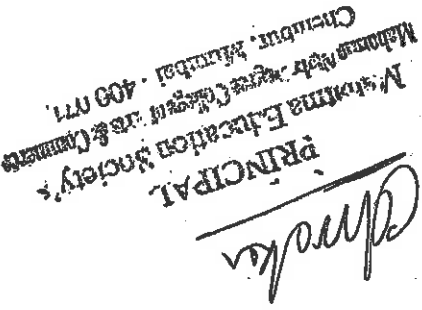 PRINCIPAL
Mahatma Education Society's
Mahatma Night Degree College of Arts & Commerce
Chembur, Mumbai - 400 071.